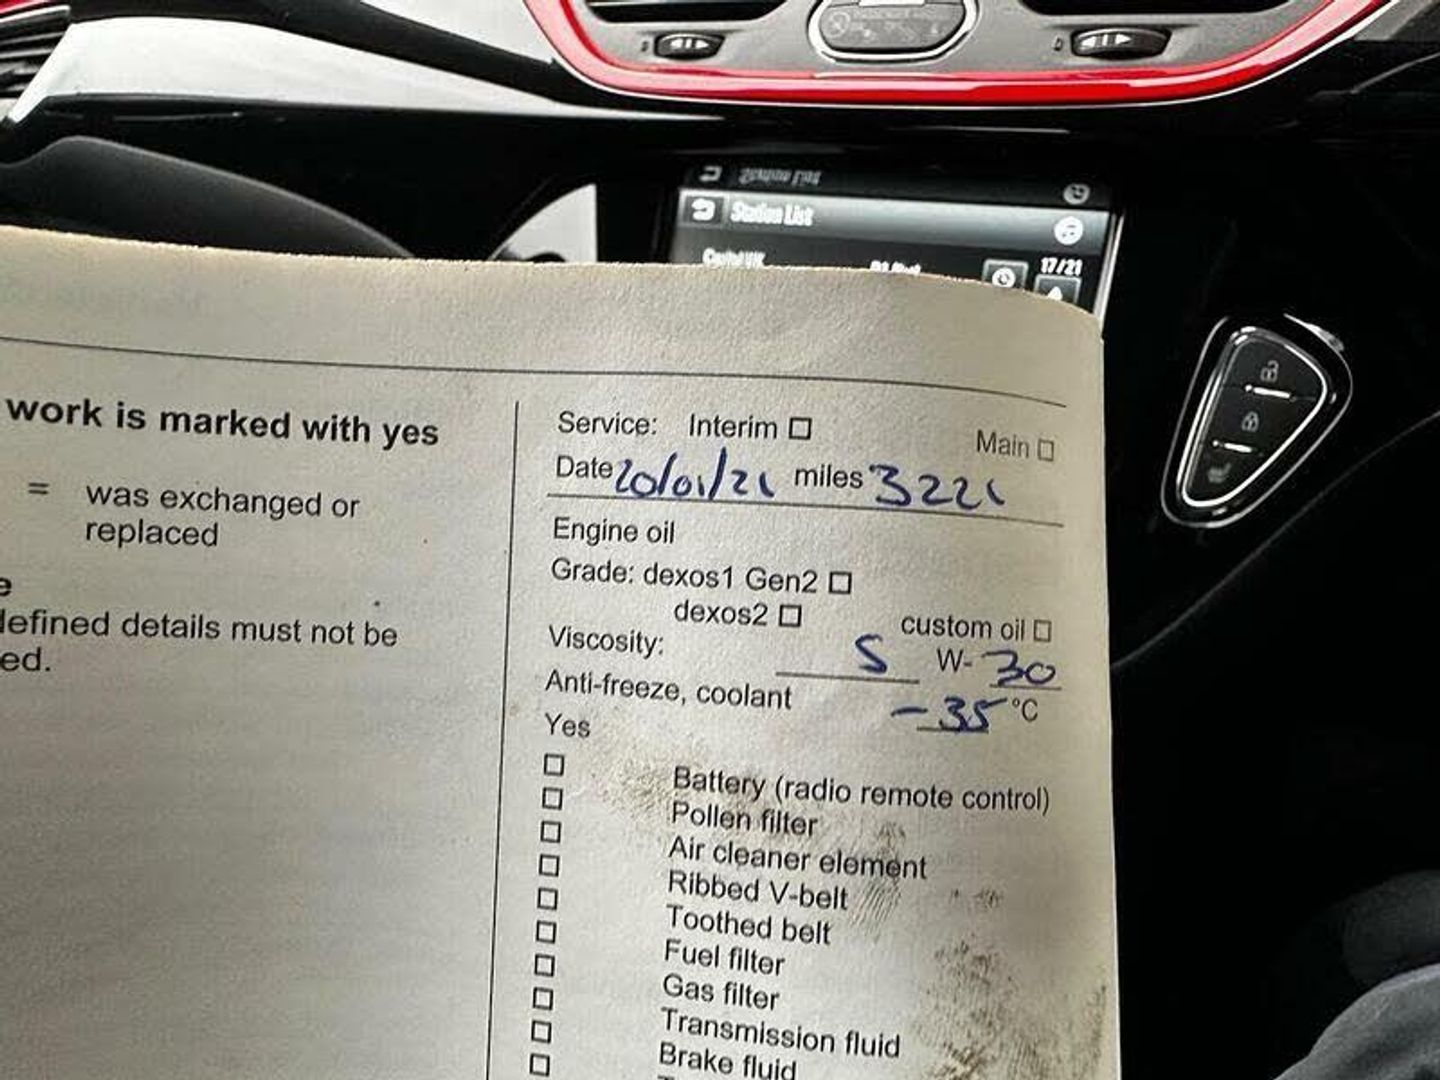 Station List
Station List
17/21
work is marked with yes
= was exchanged or
replaced
e
lefined details must not be
ed.
Service: Interim ☐ Main ☐
Date 20/01/21 miles 3221
Engine oil
Grade: dexos1 Gen2 ☐
dexos2 ☐ custom oil ☐
Viscosity: 5 W- 30
Anti-freeze, coolant -35 °C
Yes
☐ Battery (radio remote control)
☐ Pollen filter
☐ Air cleaner element
☐ Ribbed V-belt
☐ Toothed belt
☐ Fuel filter
☐ Gas filter
☐ Transmission fluid
☐ Brake fluid